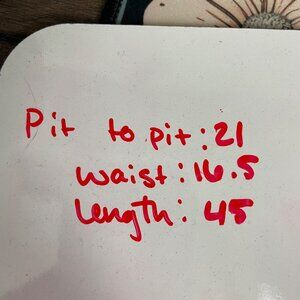 Pit to pit: 21
waist: 16.5
Length: 45